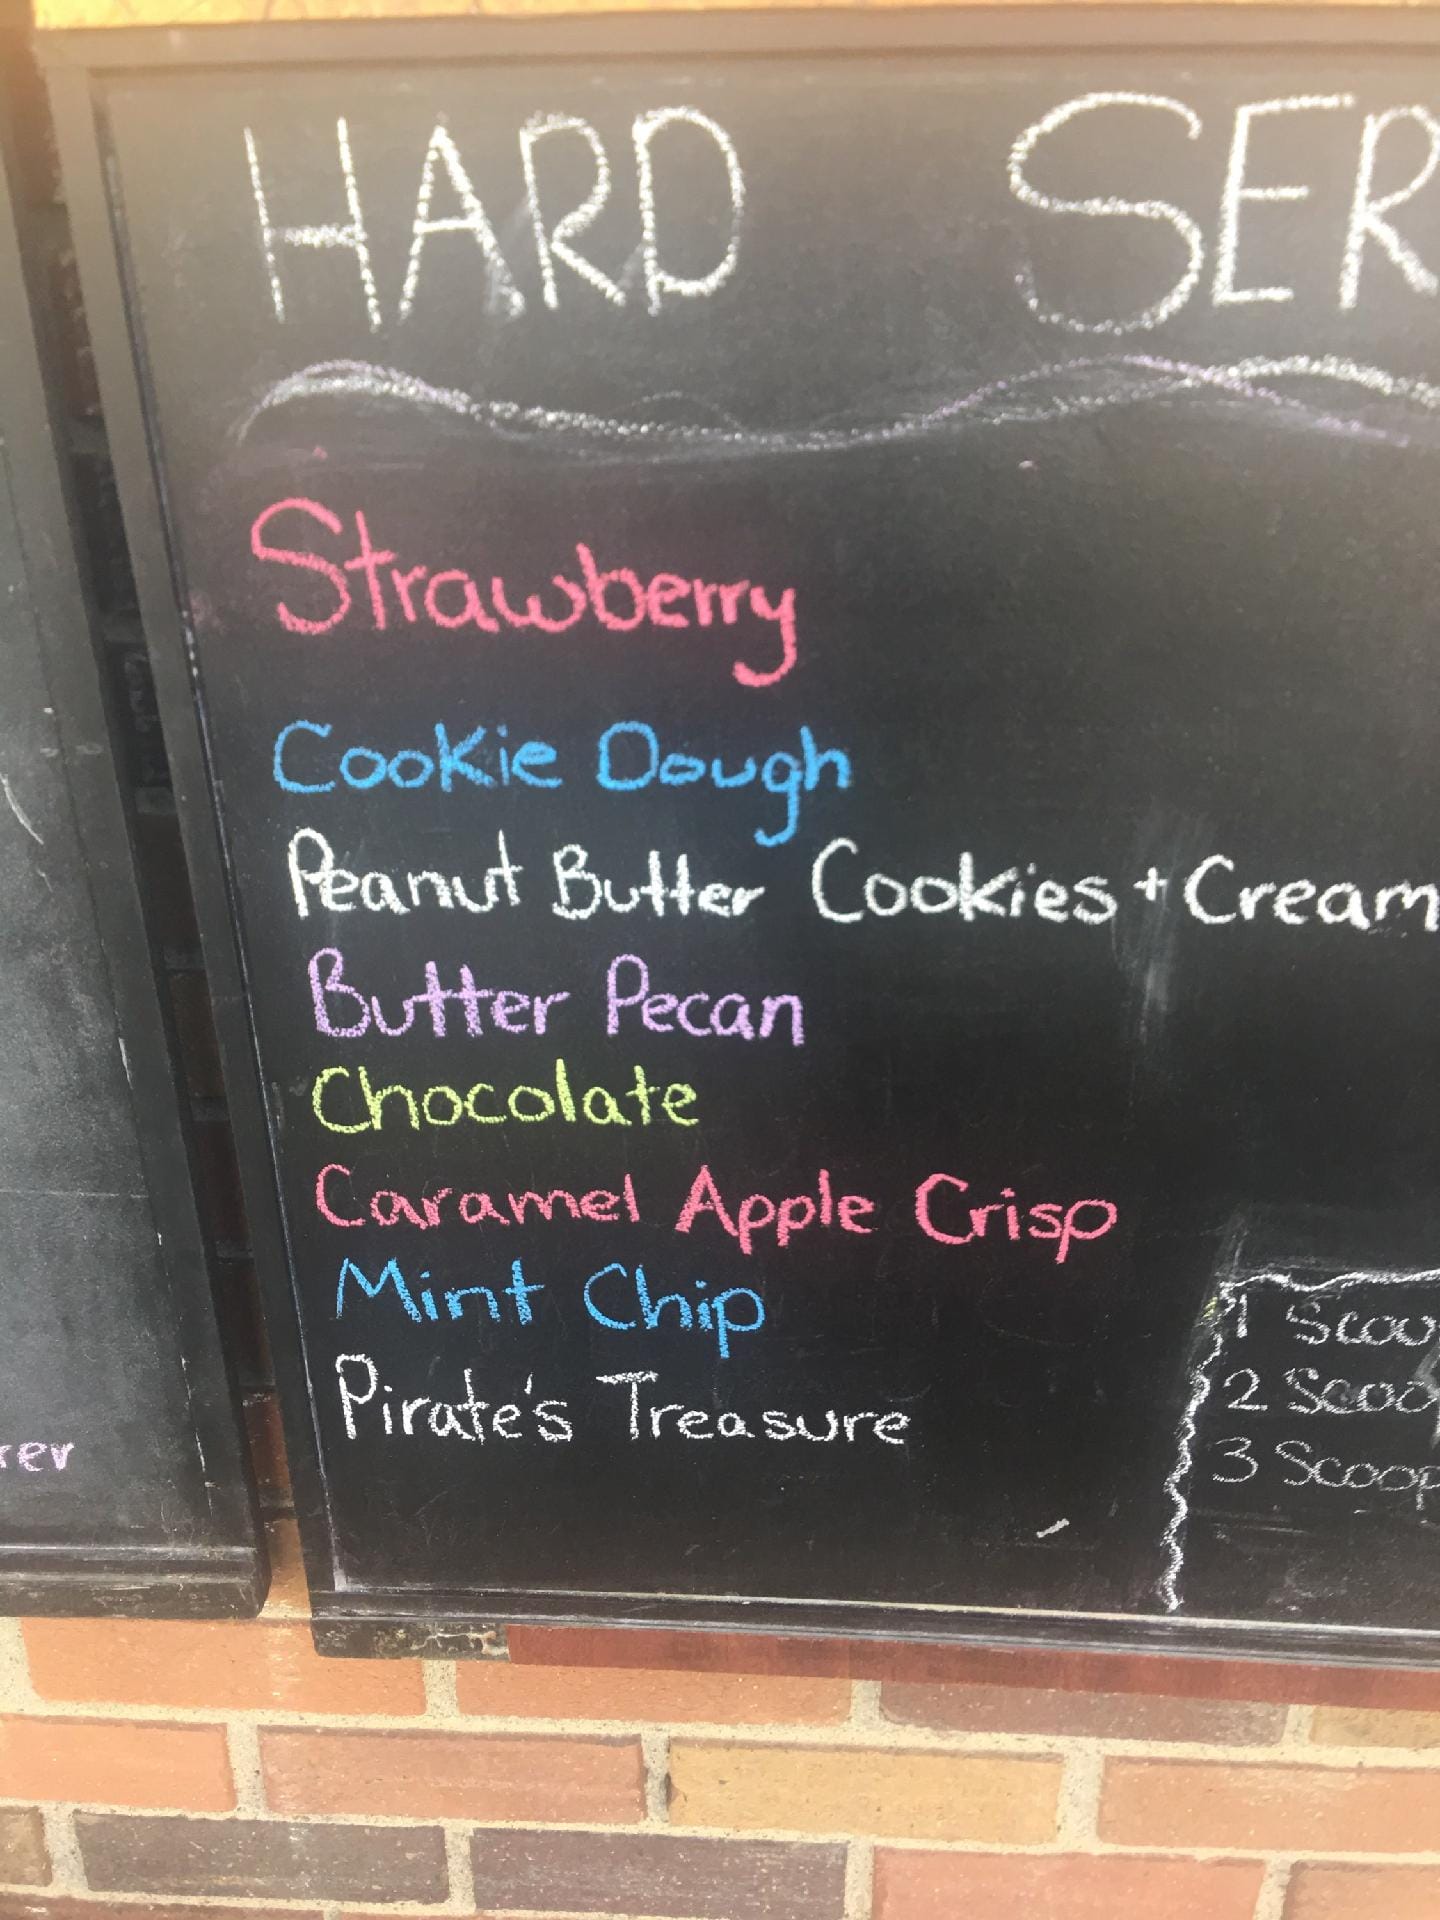 HARD SER
Strawberry
Cookie Dough
Peanut Butter Cookies + Cream
Butter Pecan
Chocolate
Caramel Apple Crisp
Mint Chip
Pirate's Treasure
1 Scoo
2 Scoop
3 Scoop
rer